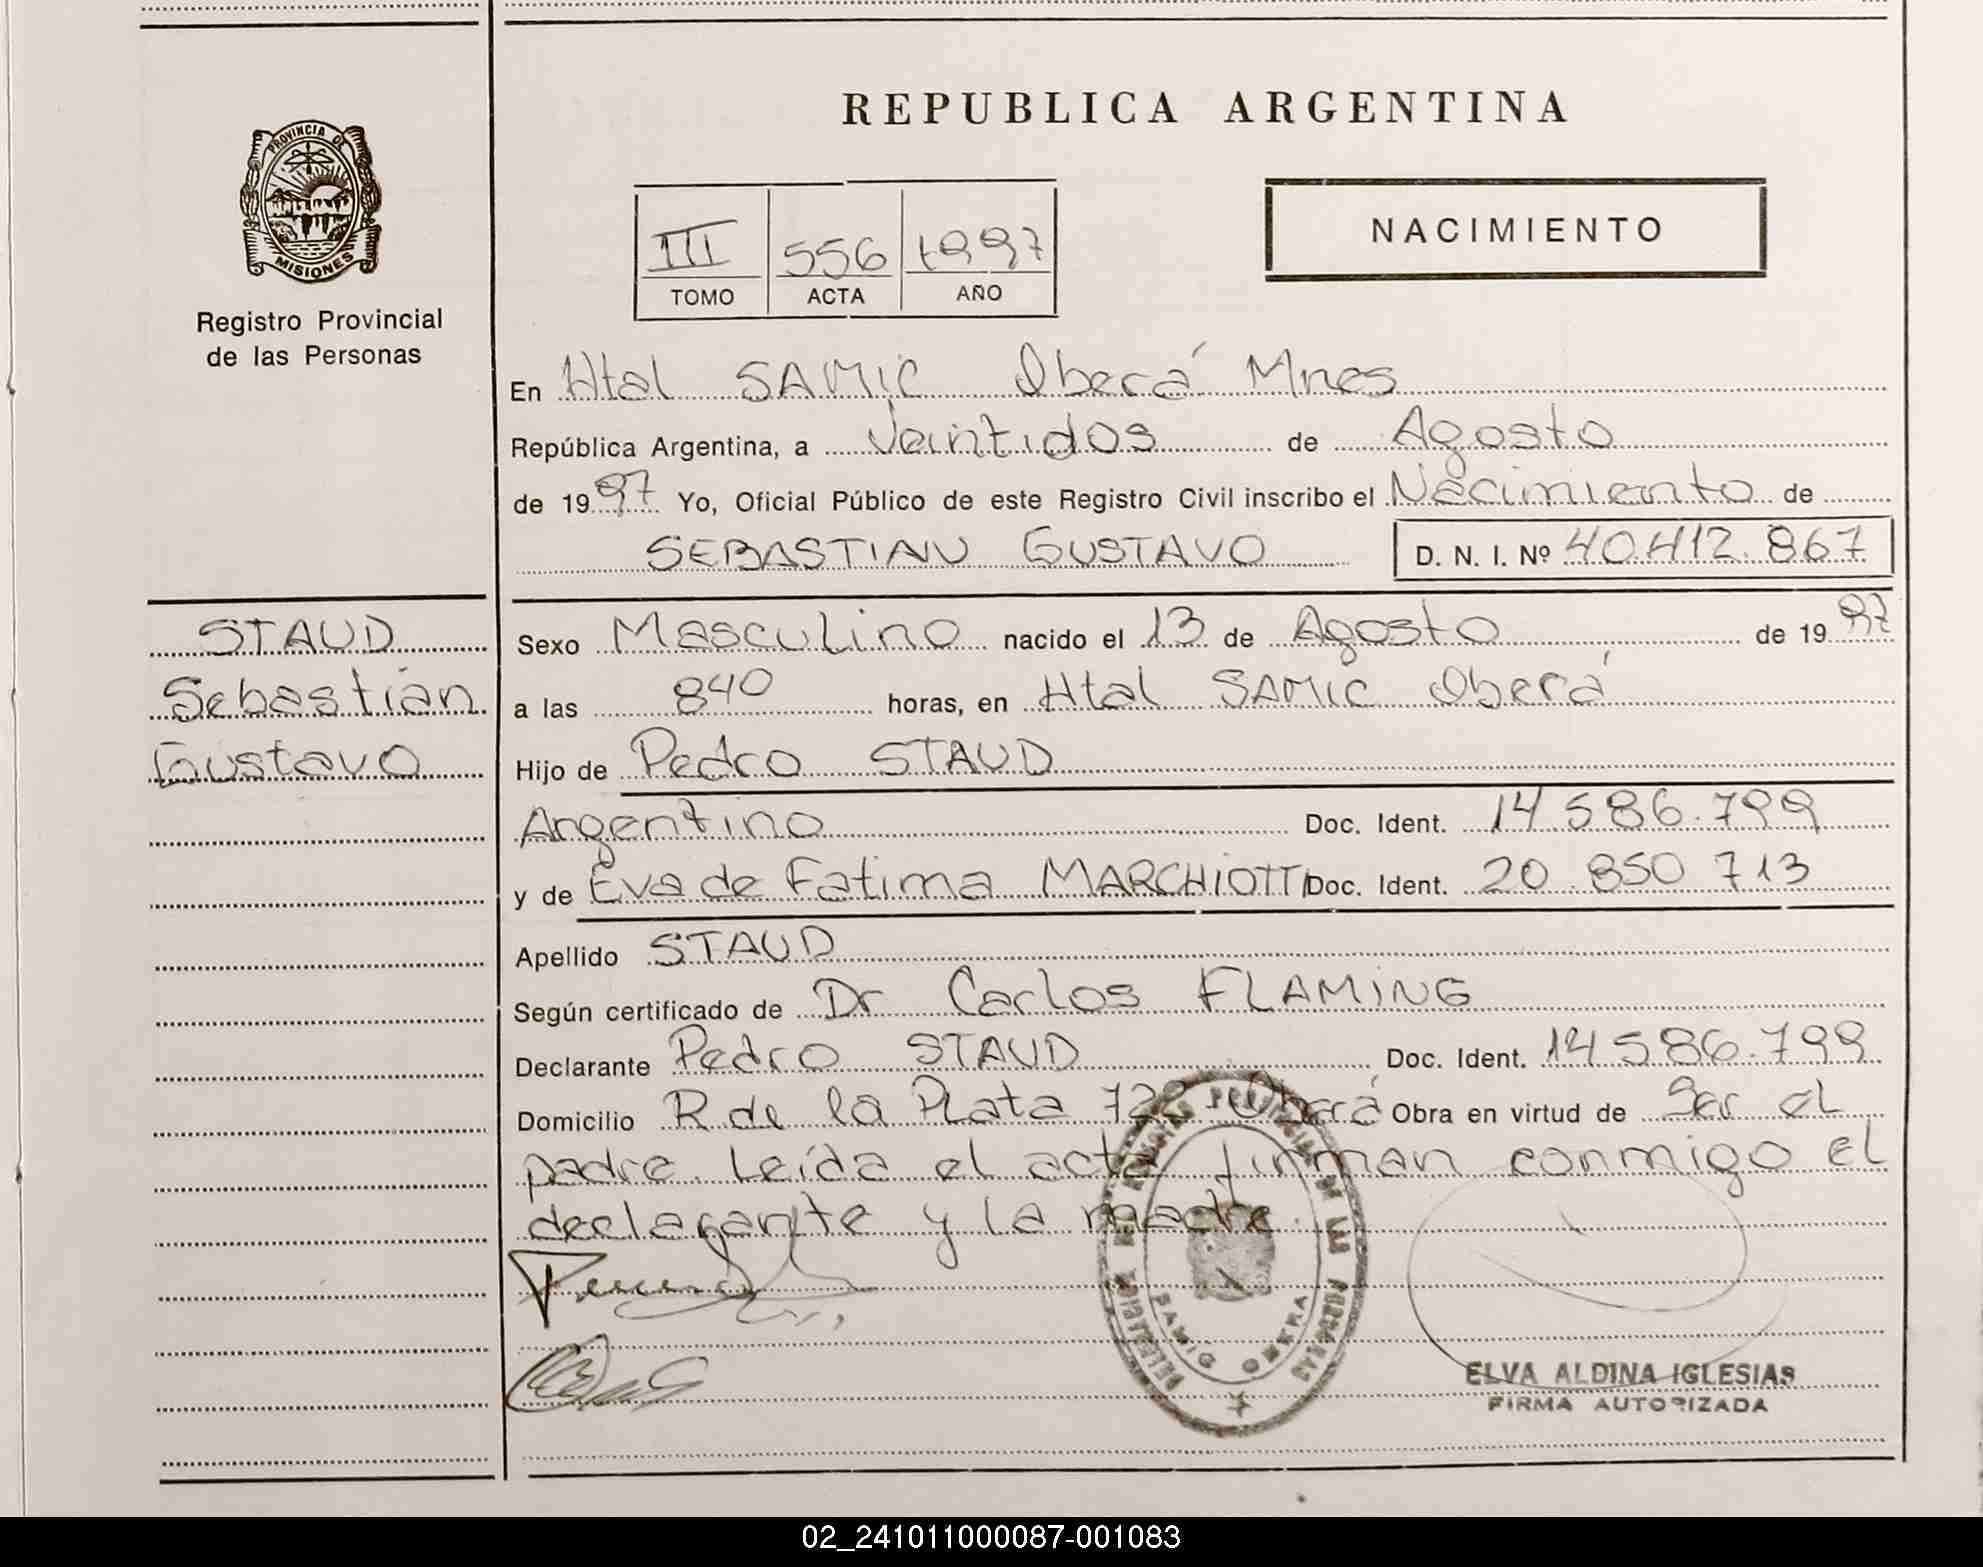 REPUBLICA ARGENTINA
PROVINCIA DE
MISIONES
Registro Provincial
de las Personas
NACIMIENTO
III 556 1997
TOMO ACTA AÑO
En Htal SAMIC Oberá Mnes
República Argentina, a Veintidos de Agosto
de 1997 Yo, Oficial Público de este Registro Civil inscribo el Nacimiento de
SEBASTIAN GUSTAVO D. N. I. Nº 40.412.867
STAUD
Sebastian
Gustavo
Sexo Masculino nacido el 13 de Agosto de 1997
a las 840 horas, en Htal SAMIC Oberá
Hijo de Pedro STAUD
Argentino Doc. Ident. 14.586.799
y de Eva de Fatima MARCHIOTTI Doc. Ident. 20.850.713
Apellido STAUD
Según certificado de Dr Carlos FLAMING
Declarante Pedro STAUD Doc. Ident. 14.586.799
Domicilio R. de la Plata Oberá Obra en virtud de Ser el
padre. Leída el acta firman conmigo el
declarante y la madre.
SAMIC OBERA
ELVA ALDINA IGLESIAS
FIRMA AUTORIZADA
02_241011000087-001083